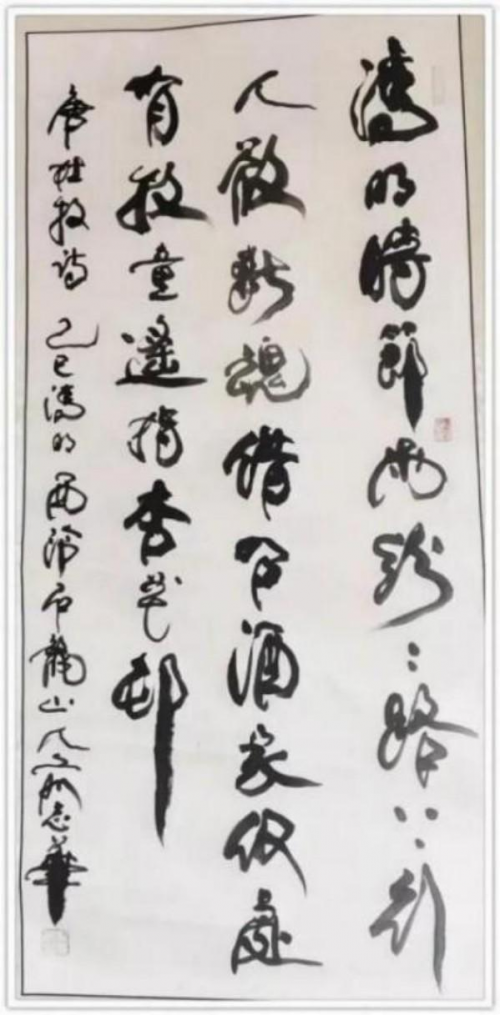 清明時節雨紛〻路上行
人欲斷魂借问酒家何處
有牧童遙指杏花邨
唐杜牧詩 乙巳清明 龍山人 志華